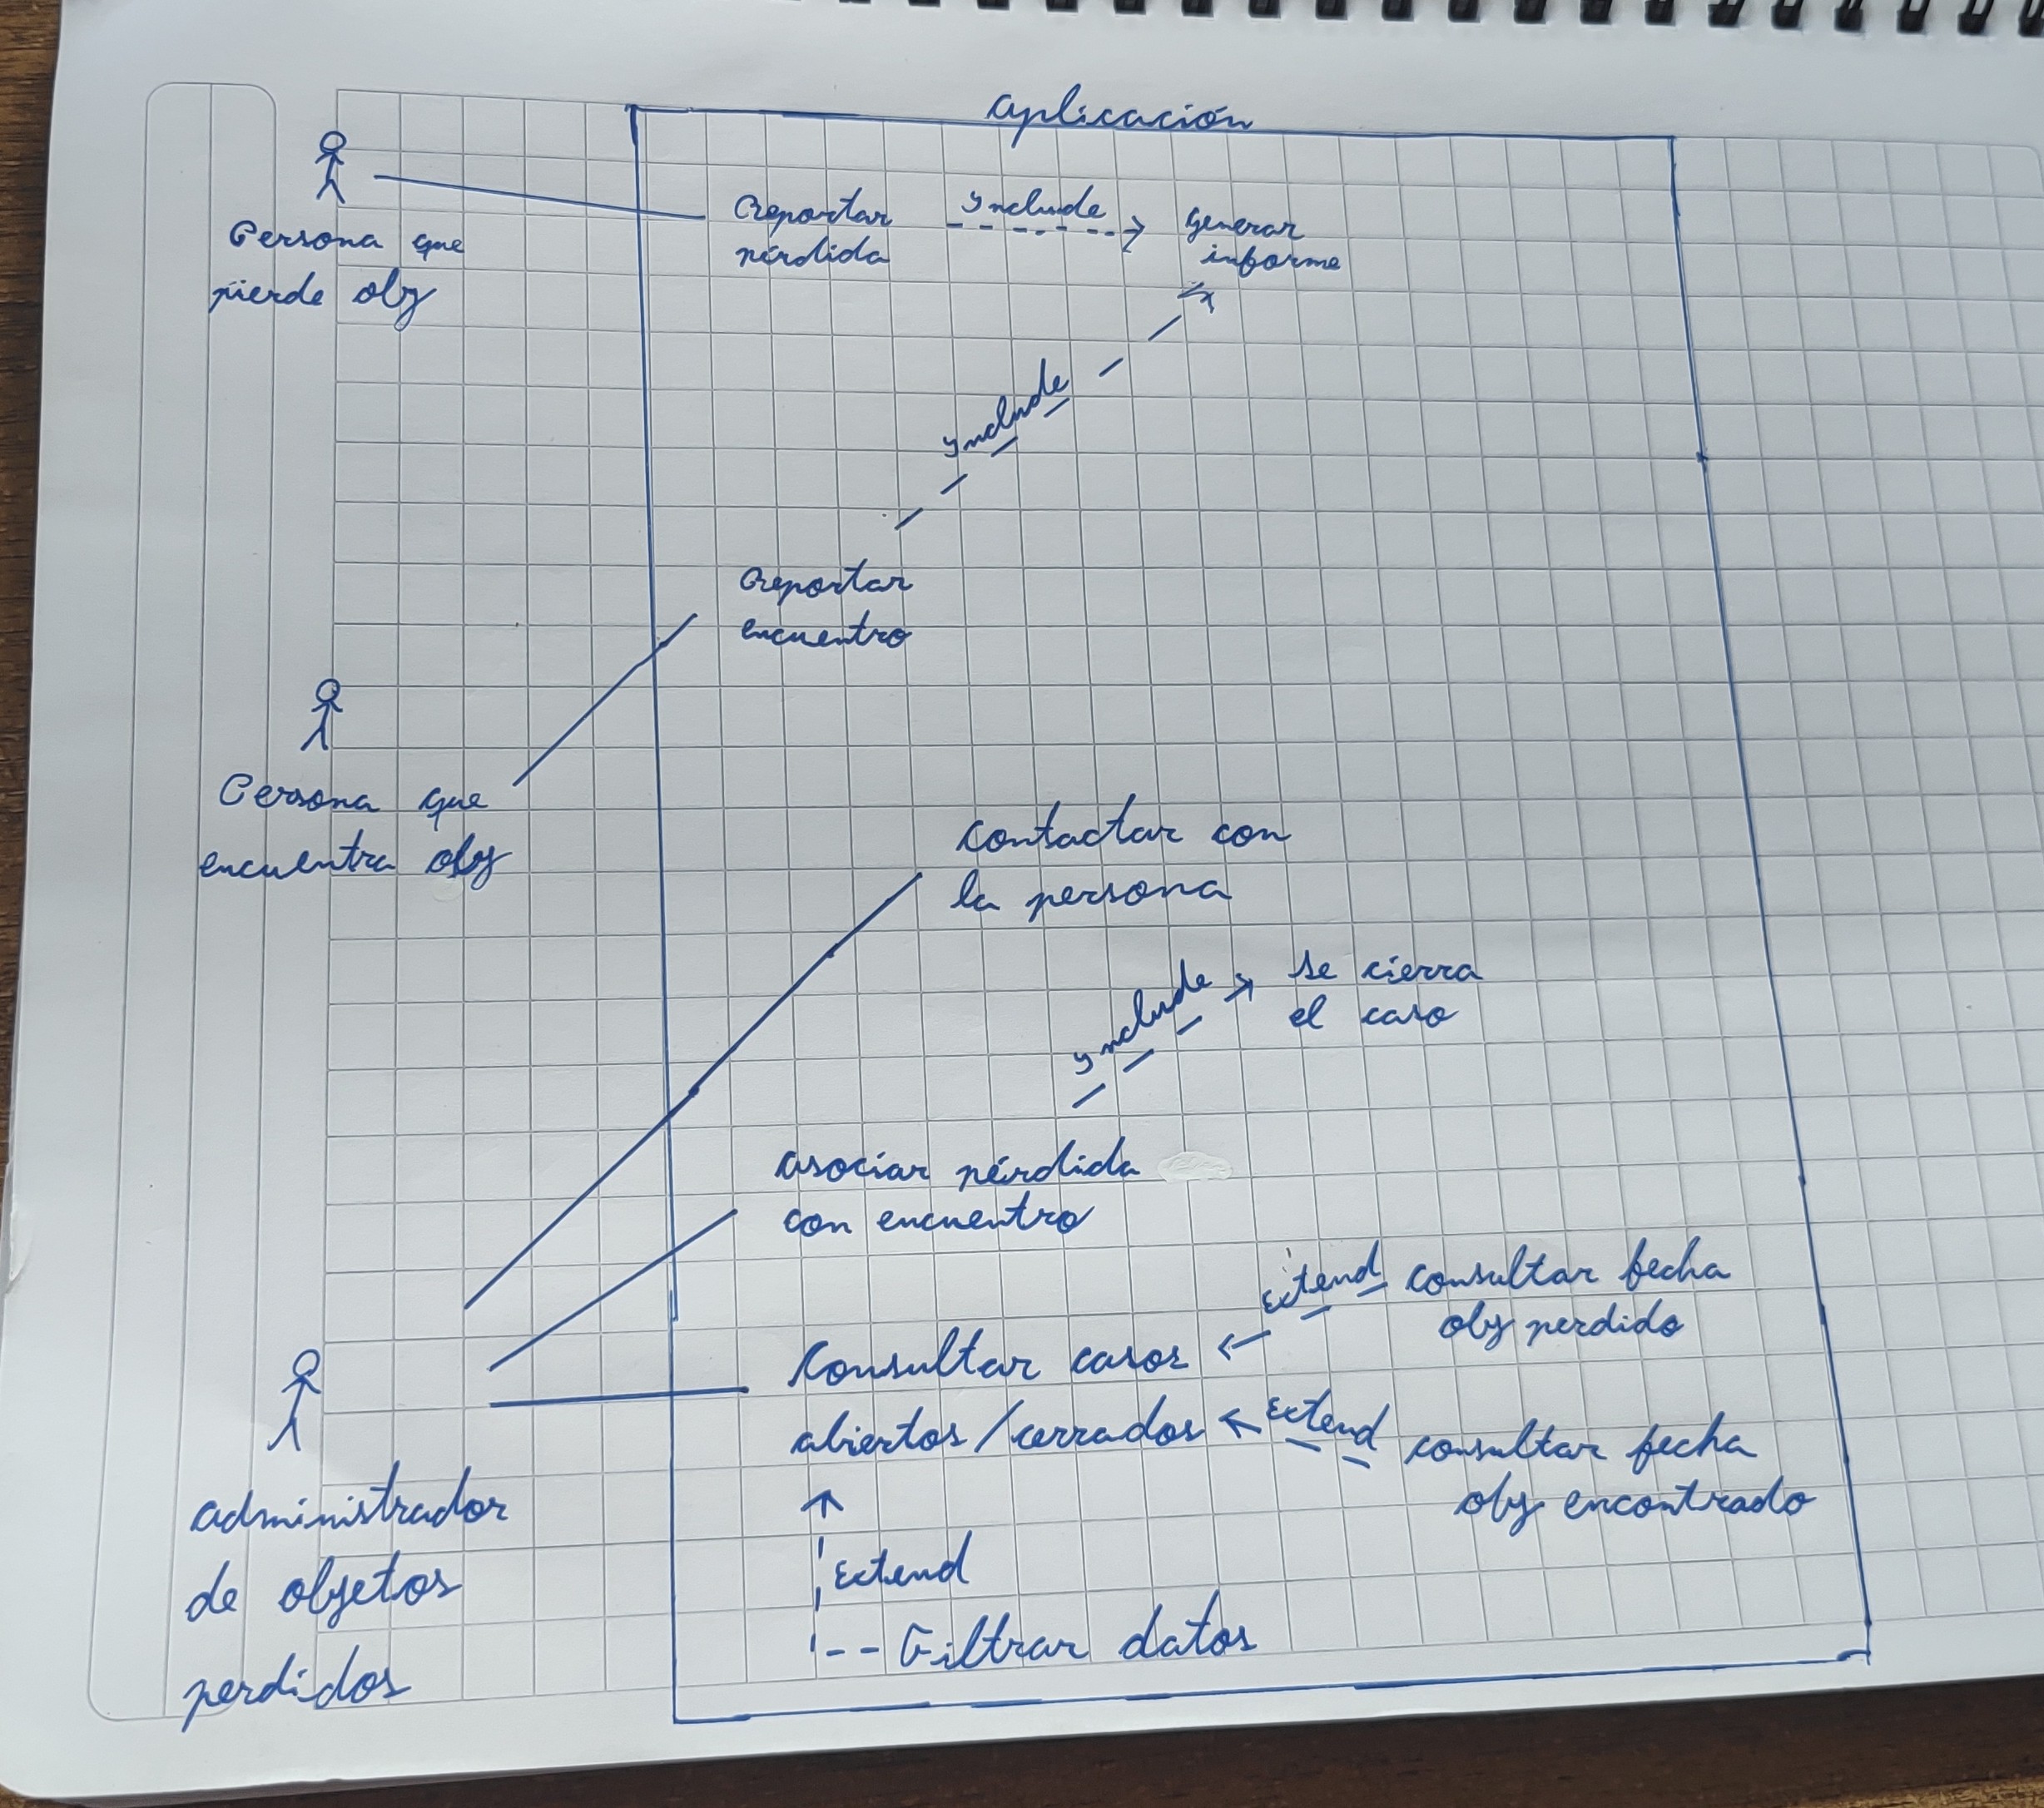 aplicación
Persona que
pierde obj
Reportar
pérdida
Include
generar
informe
Include
Reportar
encuentro
Persona que
encuentra obj
contactar con
la persona
Include
se cierra
el caso
asociar pérdida
con encuentro
Extend
consultar fecha
obj perdido
Consultar casos
abiertos/cerrados
Extend
consultar fecha
obj encontrado
administrador
de objetos
perdidos
Extend
Filtrar datos